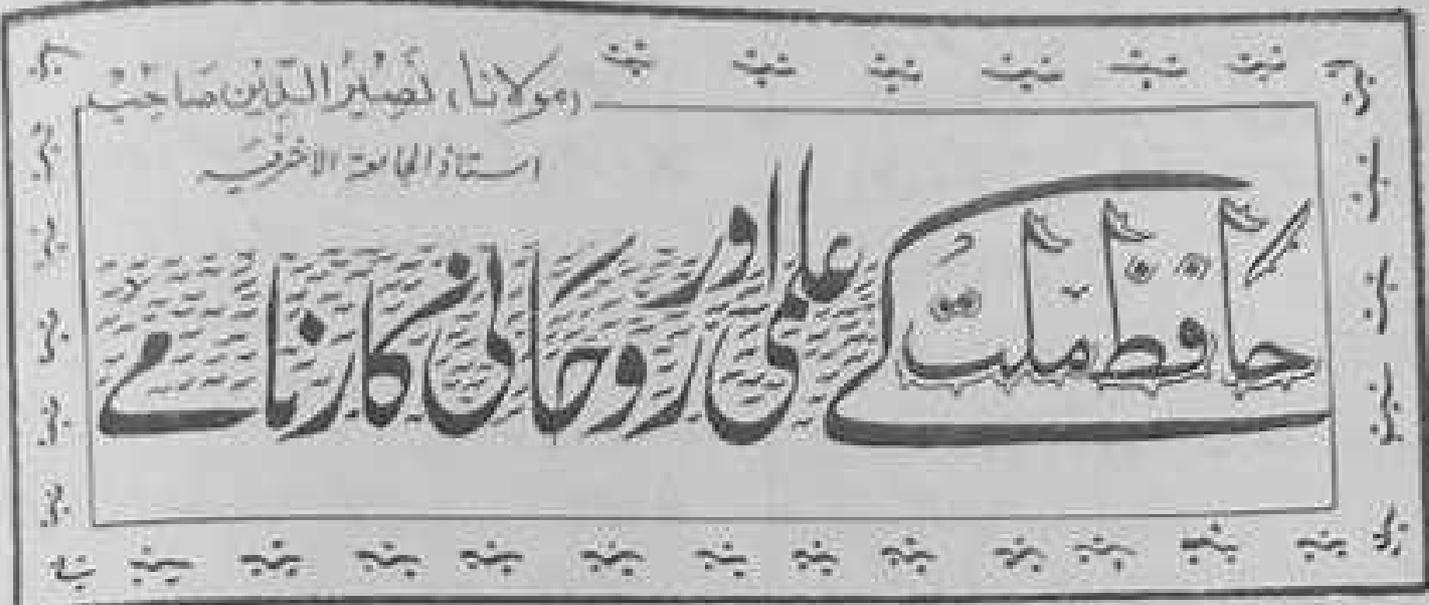 (مولانا) نصیر الدین صاحب
استاذ الجامعۃ الاشرفیہ
حافظ ملت کے علمی اور روحانی کارنامے